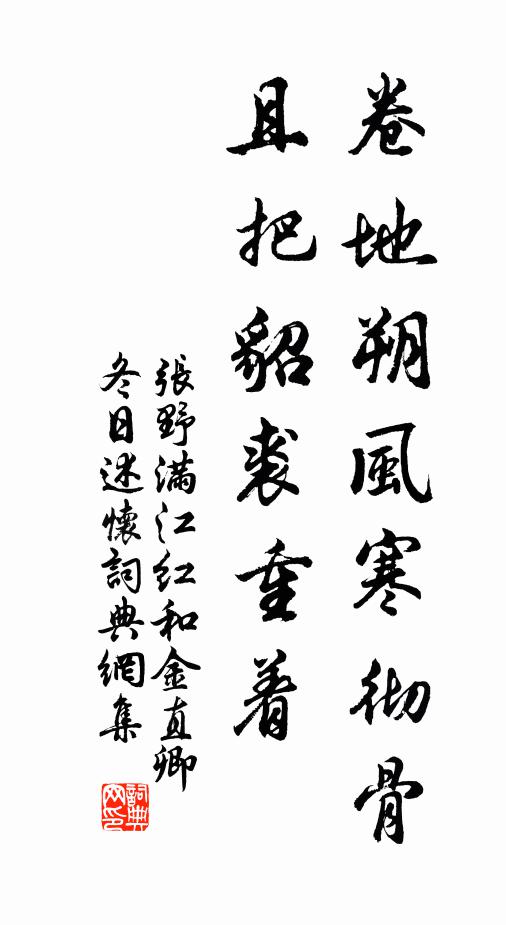 卷地朔風寒彻骨
且把貂裘重着
張野滿江红和金直卿
冬日述懷詞典網集
詞典
网印